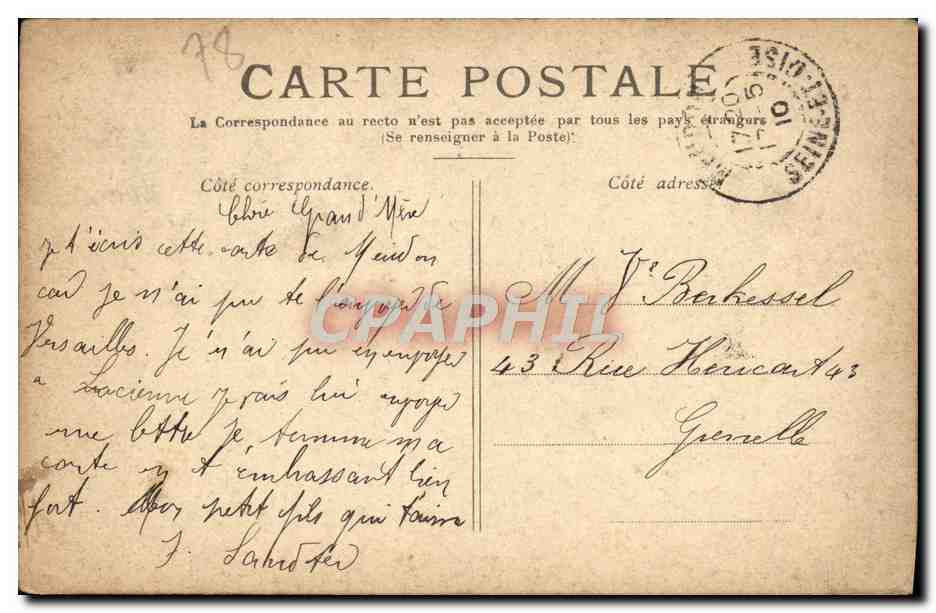 78
CARTE POSTALE
La Correspondance au recto n'est pas acceptée par tous les pays étrangers
(Se renseigner à la Poste)
SEINE-ET-OISE
17-20
15-5
10
Côté correspondance.
Côté adresse
Chère Grand'Mère
je t'écris cette carte de Meudon
car je n'ai pu te l'envoyer de
Versailles. Je n'ai pu en envoyer
a Lucienne je vais lui envoyer
une lettre je termine ma
carte en t'embrassant bien
fort. Mon petit fils qui t'aime
M Ve Berhessel
43 Rue Héricart 43
Grenelle
CPAPHIL